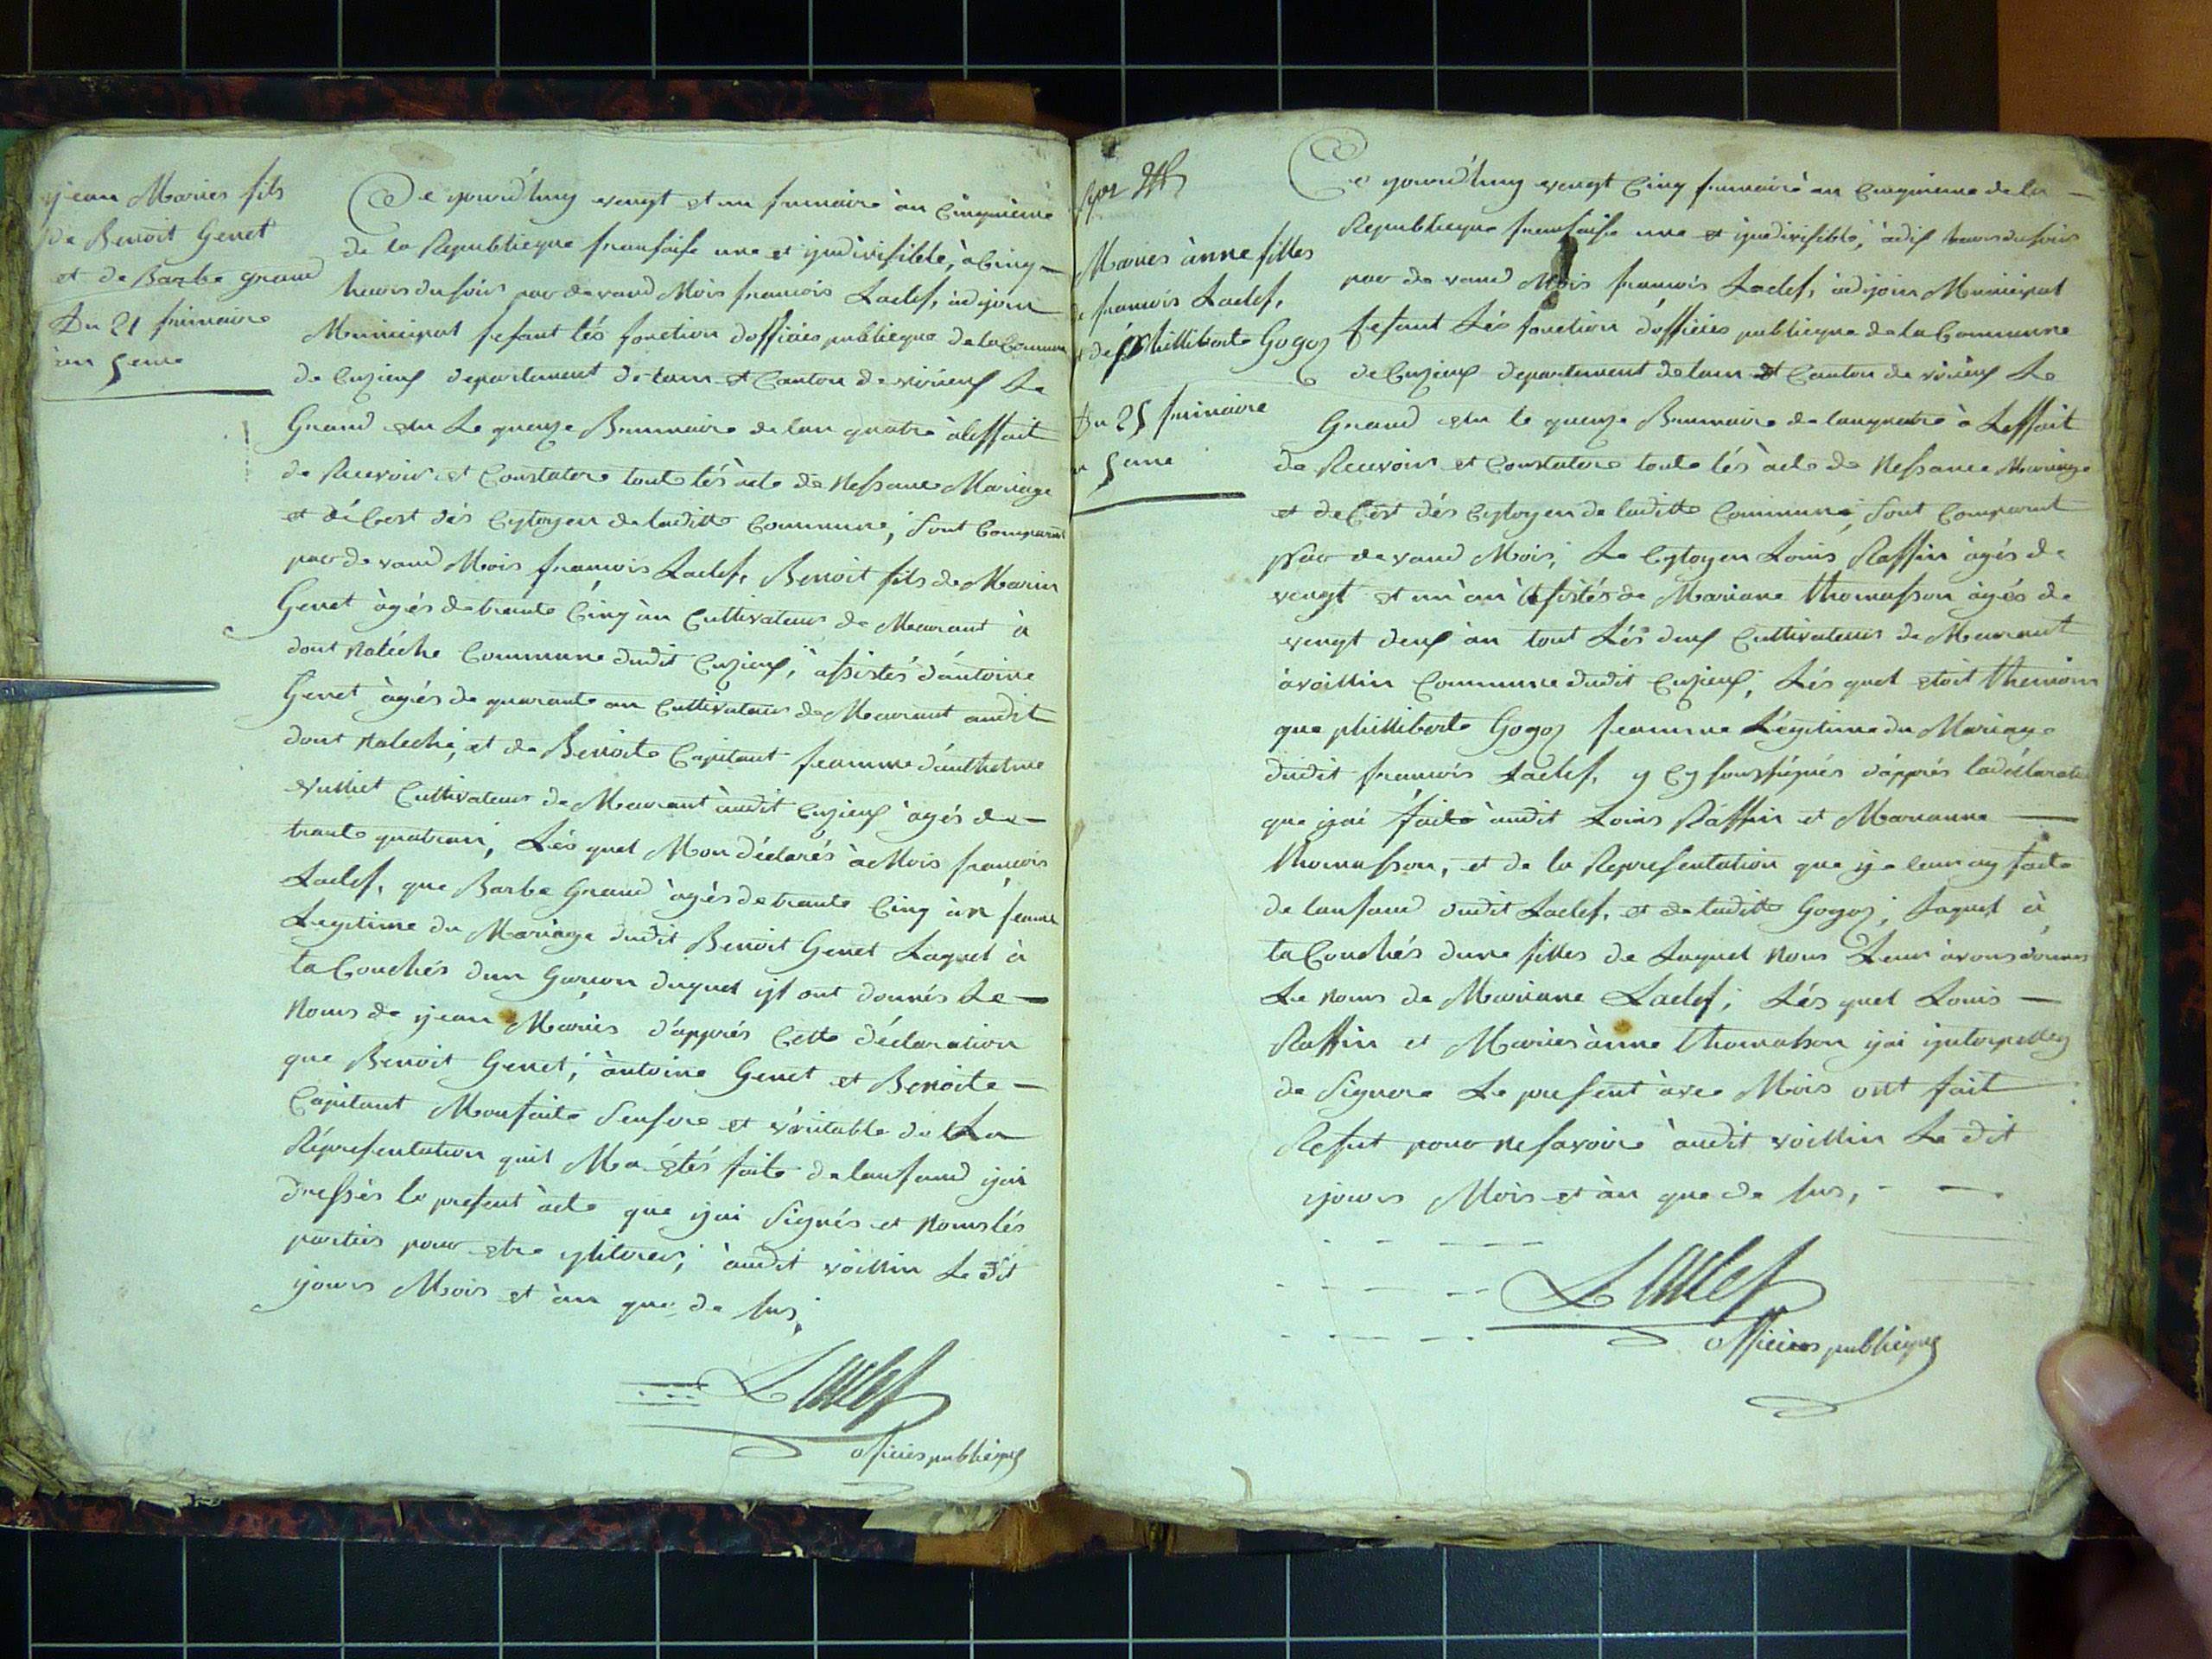 yjean Maries fils
de Benoit Genet
et de Barbe grand
Du 21 frimaire
an 5eme
Ce yourd'huy vengt et un frimaire àn Cinquieme
de la Republieque fransaise une et yndivisiblé, à Cinq
heures du soir par devand Mois francois Laclef, àdjoin
Municipal fesant lés fonction dofficiés publieque de la Commune
de Cuzieux departement de lain et Canton de virieux Le
Grand elu Le quenze Brumaire de lan quatre à leffait
de Recevoir et Constatere toute lés acte de Nessance Mariage
et dé Cest dés Cytoyen de laditte Commune, sont Comparut
par devand Mois francois Laclef, Benoit fils de Marin
Genet àgés de trante Cinq àn Cultivateur de Meurant à
dont Naléche Commune dudit Cuzieux, assistés d'antoine
Genet àgés de quarante an Cultivateur de Meurant audit
dont Naleche, et de Benoite Capitant feamme d'anthelme
vulliet Cultivateur de Meurant àudit Cuzieux àgés de
trante quatre an, Lés quel Mon déclarés à Mois francois
Laclef, que Barbe Grand àgés de trante Cinq àn feamme
Legitime du Mariage dudit Benoit Genet Laquel à
ta Couchés dun Garcon duquel yl ont donnés Le
Noms de yjean Maries d'apprés Cette déclaration
que Benoit Genet, àntoine Genet et Benoite
Capitant Mon faite sensere et véritable de La
Répresentation quil Ma etés faite de lansand yjai
dressés le present àcte que yjai Signés et Noms lés
parties pour etre yllitèrer, àudit voillin Le dit
yjours Mois et àn que de sus,
Laclef
officiés publieque
Maries ànne filles
de francois Laclef,
et de philliberte Gogoz
Du 25 frimaire
an 5eme
Ce yourd'huy vengt Cinq frimaire àn Cinquieme de la
Republieque fransaise une et yndivisible, à dix heures du soir
par devand Mois francois Laclef, àdjoin Municipal
fesant Lés fonction dofficiés publieque de la Commune
de Cuzieux departement de lain et Canton de virieux Le
Grand elu le quenze Brumaire de lan quatre à Leffait
de Recevoir et Constatere toute lés àcte de Nessance Mariage
et de Cest dés Cytoyen de laditte Commune, sont Comparut
par devand Mois, Le Cytoyen Louis Raffin àgés de
vengt et un àn Assistés de Mariane thomasson àgés de
vengt deux àn tout Lés deux Cultivateurs de Meurant
à voillin Commune dudit Cuzieux, Lés quel etoit themoin
que phillibarte Gogoz feamme Légitime du Mariage
dudit francois Laclef, y Cy soussignés d'apprés la déclaration
que yjai faite àudit Louis Raffin et Marianne
thomasson, et de la Representation que yje leur ay faite
de lansand dudit Laclef, et de laditte Gogoz, Laquel à
ta Couchés dune filles de Laquel Nous Leur àvons donnés
Le Noms de Mariane Laclef, Lés quel Louis
Raffin et Maries ànne thomasson yjai ynterpelley
de Signere Le present àvec Mois ont fait
Refut pour ne savoire àudit voillin Le dit
yjours Mois et àn que de sus,
Laclef
officiés publieque